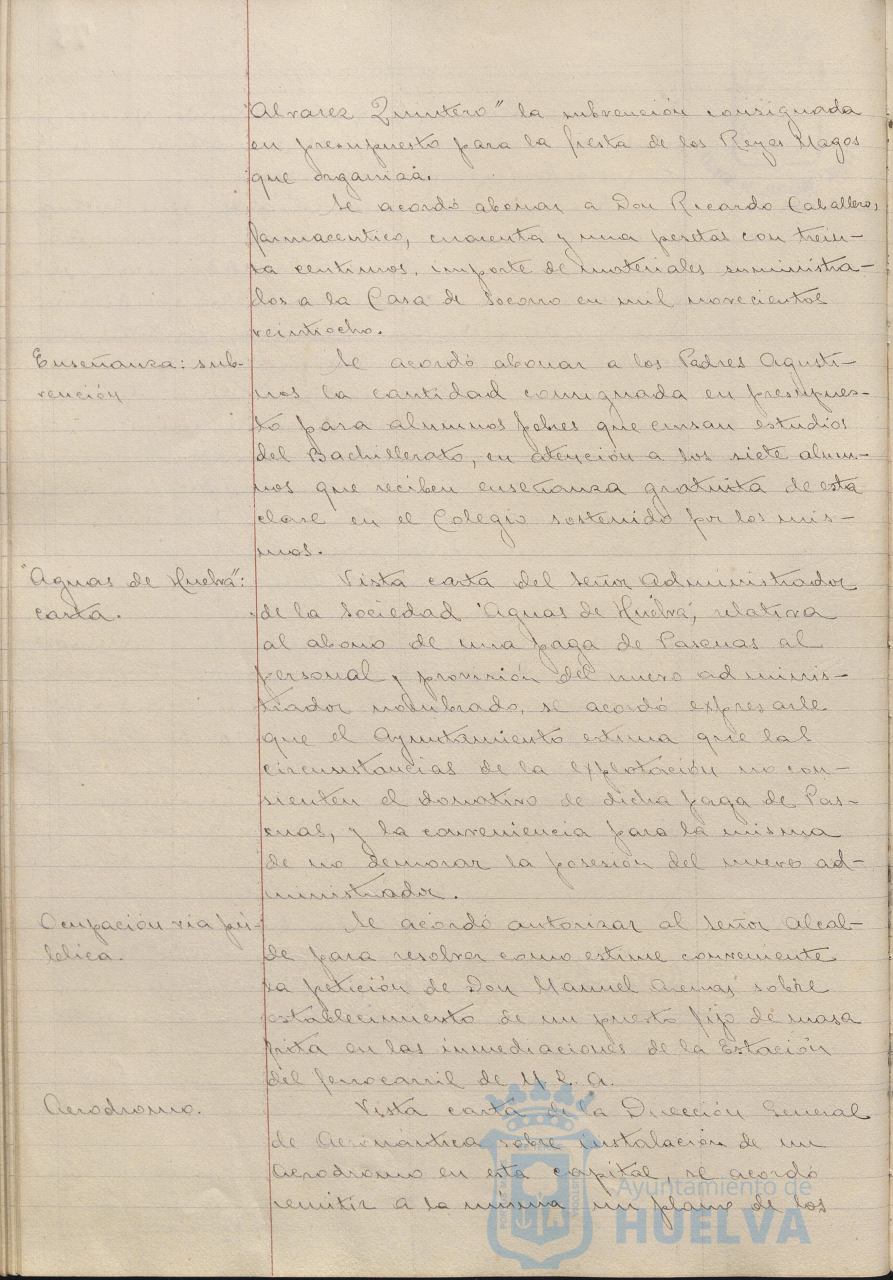 "Alvarez Quintero" la subvención consignada
en presupuesto para la fiesta de los Reyes Magos
que organiza.
Se acordó abonar a Don Ricardo Caballero,
farmaceutico, cuarenta y una pesetas con trein-
ta centimos, importe de materiales suministra-
dos a la Casa de Socorro en mil novecientos
veintiocho.
Enseñanza: sub-
vención
Se acordó abonar a los Padres Agusti-
nos la cantidad consignada en presupues-
to para alumnos pobres que cursan estudios
del Bachillerato, en atención a los siete alum-
nos que reciben enseñanza gratuita de esta
clase en el Colegio sostenido por los mis-
mos.
"Aguas de Huelva":
carta.
Vista carta del Señor Administrador
de la Sociedad "Aguas de Huelva", relativa
al abono de una paga de Pascuas al
personal y provisión del nuevo adminis-
trador nombrado, se acordó expresarle
que el Ayuntamiento estima que las
circunstancias de la explotación no con-
sienten el donativo de dicha paga de Pas-
cuas, y la conveniencia para la misma
de no demorar la posesión del nuevo ad-
ministrador.
Ocupación via pú-
blica.
Se acordó autorizar al Señor Alcal-
de para resolver como estime conveniente
la petición de Don Manuel sobre
establecimiento de un puesto fijo de masa
frita en las inmediaciones de la Estación
del ferrocarril de M. Z. A.
Aerodromo.
Vista carta de la Dirección General
de Aeronáutica sobre instalación de un
Aerodromo en esta capital, se acordó
remitir a la misma un plano de los
Ayuntamiento de
HUELVA